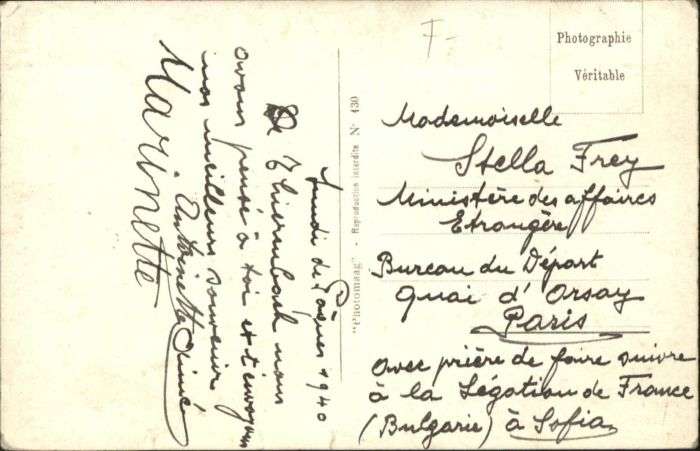 Lundi de Pâques 1940
De Thierenbach nous
avons pensé à toi et t'envoyons
nos meilleurs souvenirs
Antoinette Aimé
Marinette
"Photomaag" - Reproduction interdite Nº 430
F-
Photographie
Véritable
Mademoiselle
Stella Frey
Ministère des affaires
Etrangère
Bureau du Départ
Quai d'Orsay
Paris
avec prière de faire suivre
à la Légation de France
(Bulgarie) à Sofia